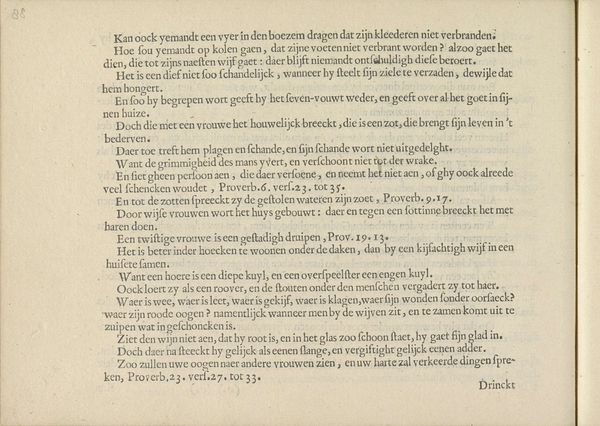 38
Kan oock yemandt een vyer in den boezem dragen dat zijn kleederen niet verbranden.
Hoe sou yemandt op kolen gaen, dat zijne voeten niet verbrant worden? alzoo gaet het
dien, die tot zijns naesten wijf gaet: daer blijft niemandt ontschuldigh diese beroert.
Het is een dief niet soo schandelijck, wanneer hy steelt zijn ziele te verzaden, dewijle dat
hem hongert.
En soo hy begrepen wort geeft hy het seven-vouwt weder, en geeft over al het goet in sij-
nen huize.
Doch die met een vrouwe het houwelijck breeckt, die is een zot, die brengt sijn leven in 't
bederven.
Daer toe treft hem plagen en schande, en sijn schande wort niet uitgedelght.
Want de grimmigheid des mans yvert, en verschoont niet tot der wrake.
En siet gheen persoon aen, die daer versoene, en neemt het niet aen, of ghy oock alreede
veel schencken woudet, Proverb. 6. vers. 23. tot 35.
En tot de zotten spreeckt zy de gestolen wateren zijn zoet, Proverb. 9. 17.
Door wijse vrouwen wort het huys gebouwt: daer en tegen een sottinne breeckt het met
haren doen.
Een twistige vrouwe is een gestadigh druipen, Prov. 19. 13.
Het is beter in der hoecken te woonen onder de daken, dan by een kijfachtigh wijf in een
huise te samen.
Want een hoere is een diepe kuyl, en een overspeelster een engen kuyl.
Oock loert zy als een roover, en de stouten onder den menschen vergadert zy tot haer.
Waer is wee, waer is leet, waer is gekijf, waer is klagen, waer sijn wonden sonder oorsaeck?
waer zijn roode oogen? namentlijck wanneer men by de wijven zit, en te zamen komt uit te
zuipen wat in geschoncken is.
Ziet den wijn niet aen, dat hy root is, en in het glas zoo schoon staet, hy gaet sijn glad in.
Doch daer na steeckt hy gelijck als eenen slange, en vergiftight gelijck eenen adder.
Zoo zullen uwe oogen naer andere vrouwen zien, en uw harte zal verkeerde dingen spre-
ken, Proverb. 23. vers. 27. tot 33.
Drinckt